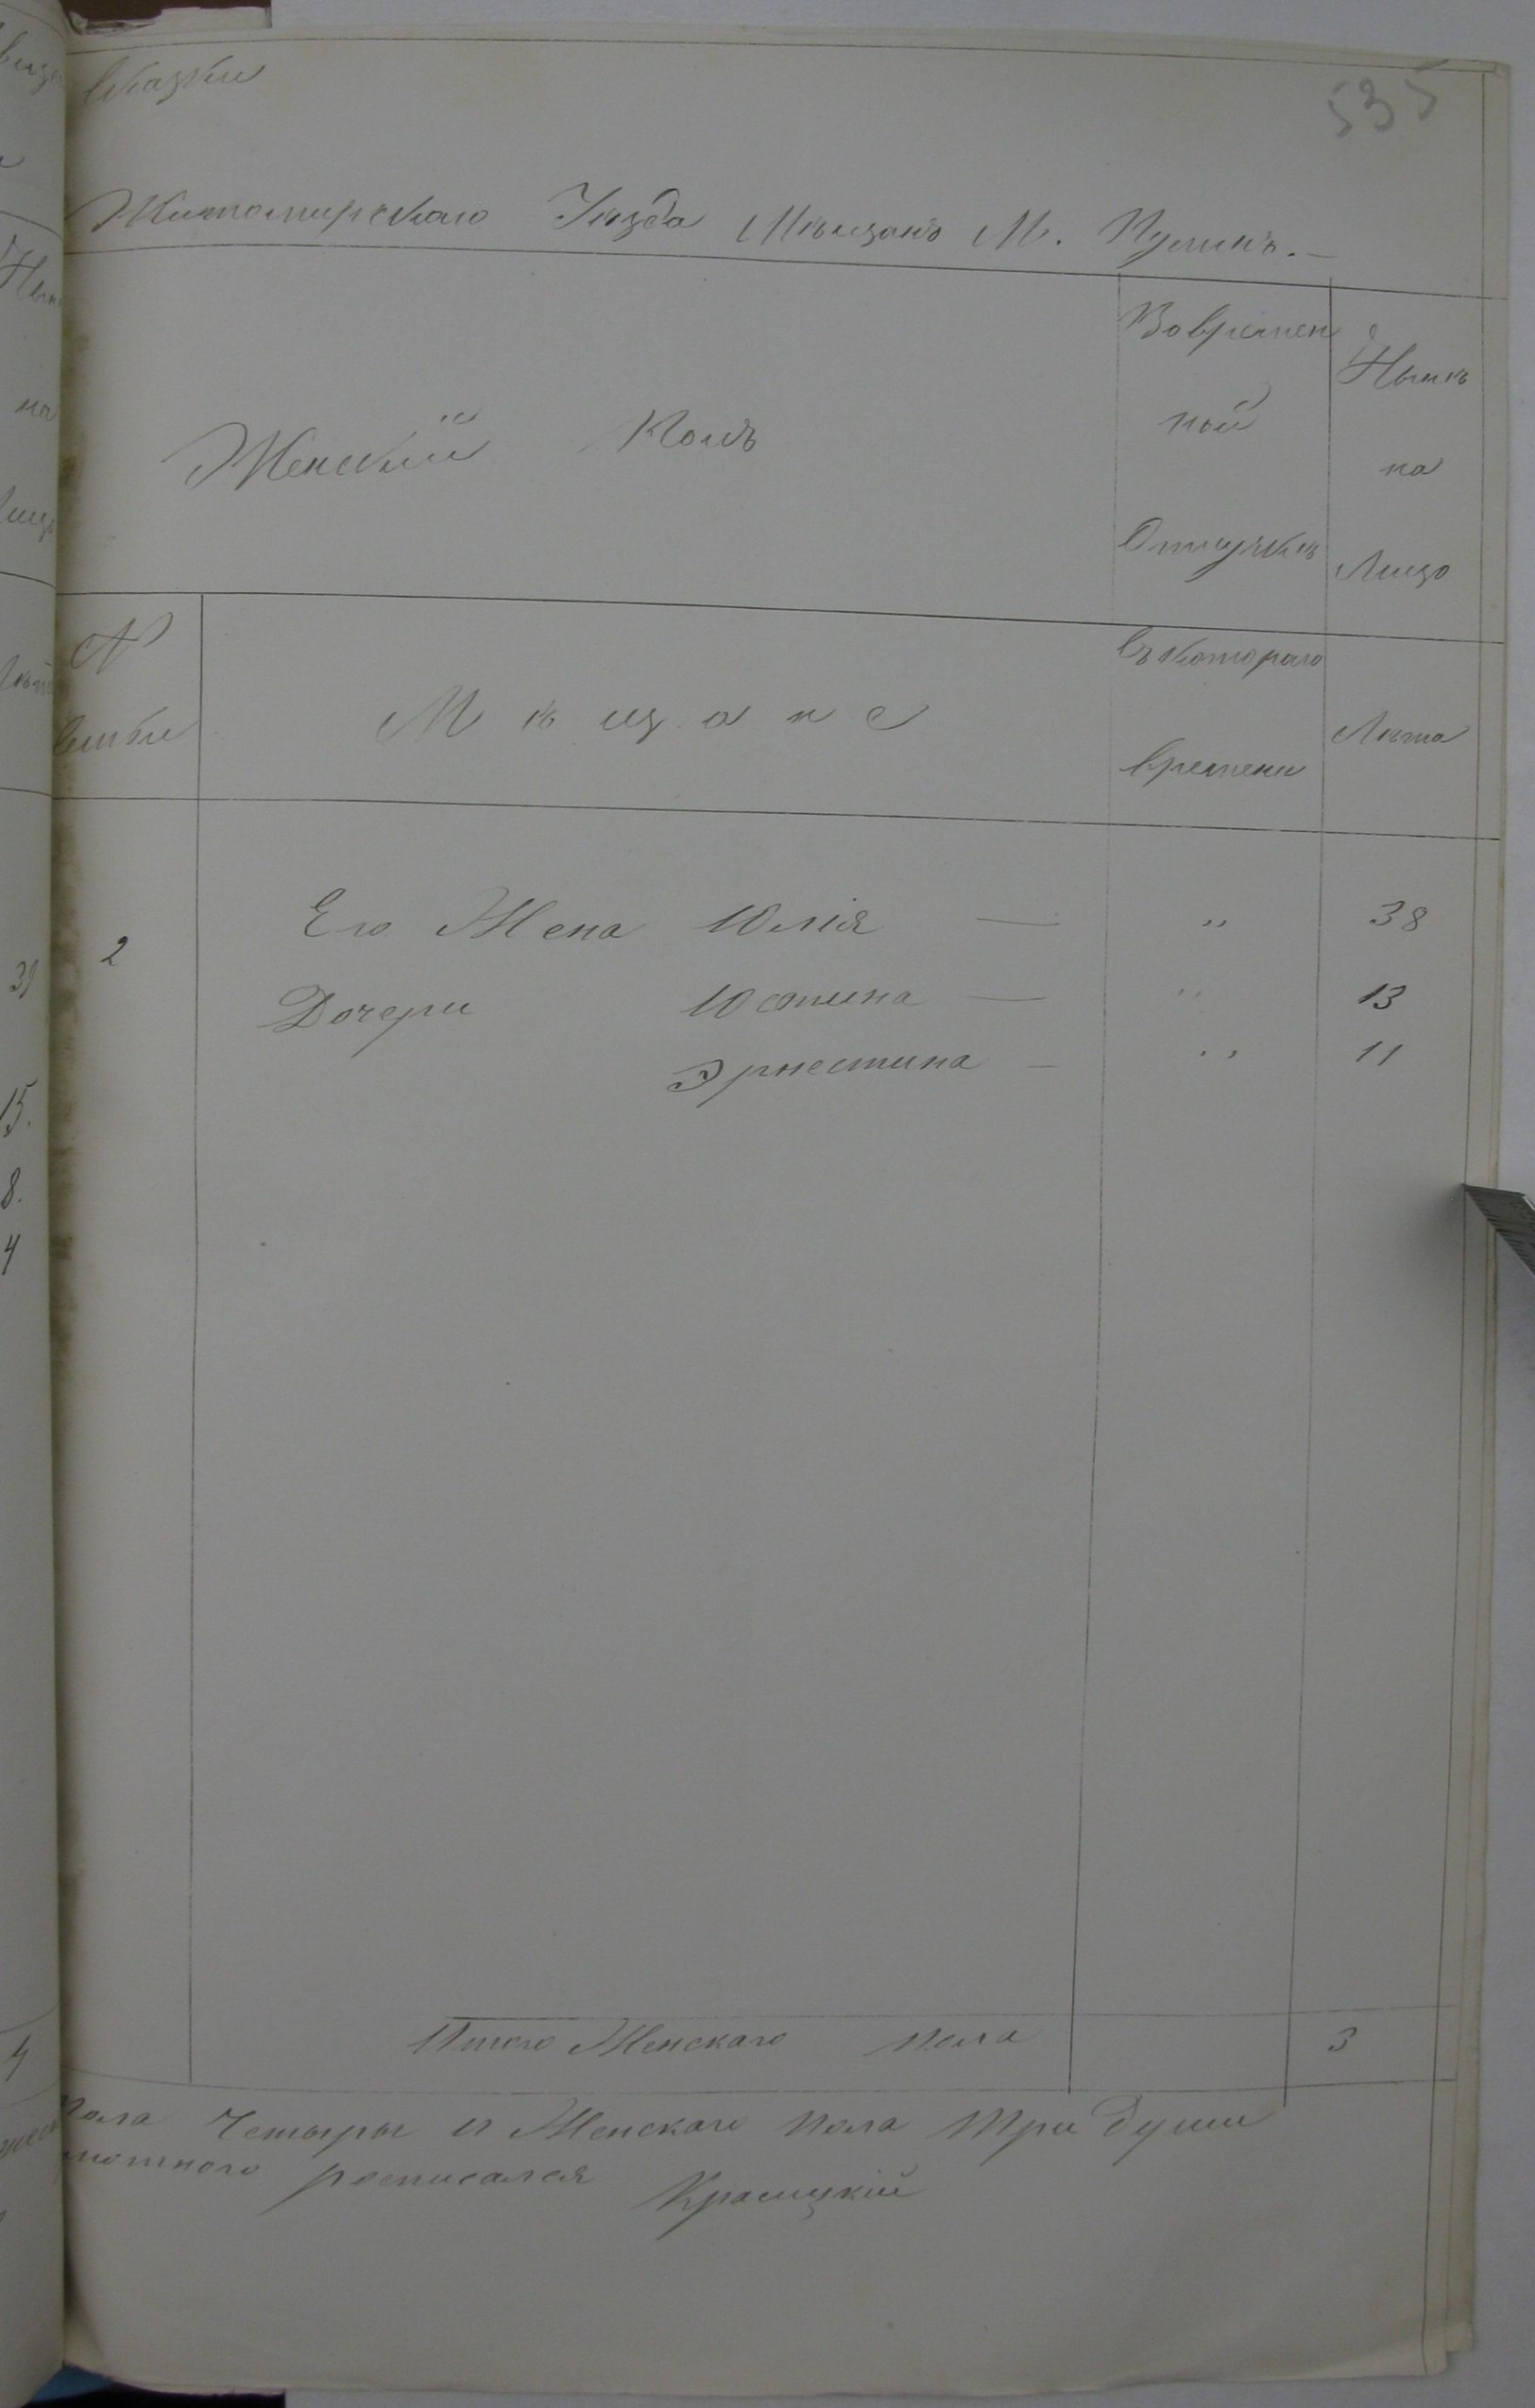 Сказки
535
Житомирскаго Уѣзда Мѣщанъ М. Пулинъ. —
Женскій Полъ
Во времен
ной
Отлучкѣ
Нынѣ
на
Лицо
№
Семьи
Мѣщане
Съ котораго
времени
Лѣта
2
Его Жена Юлія — „ 38
Дочери Юстина — „ 13
Эрнестина — „ 11
Итого Женскаго пола 3
пола Четыры и Женскаго пола три души
росписался
39
15.
8.
4
4